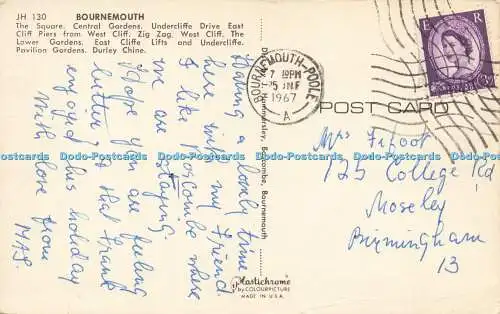 JH 130 BOURNEMOUTH
The Square. Central Gardens. Undercliffe Drive East
Cliff Piers from West Cliff. Zig Zag. West Cliff. The
Lower Gardens. East Cliffe Lifts and Undercliffe.
Pavilion Gardens. Durley Chine.
Having a lovely time
here with my friend.
I like Boscombe where
we are staying.
Hope you are feeling
better, & that Frank
enjoyed his holiday
With love from
MAJ.
BOURNEMOUTH-POOLE
7 PM
1967
A
E R
POST CARD
Mrs
125 College Rd
Moseley
Birmingham
13
Boscombe, Bournemouth
Plastichrome
by COLOURPICTURE
MADE IN U.S.A.
Postcards-World.com